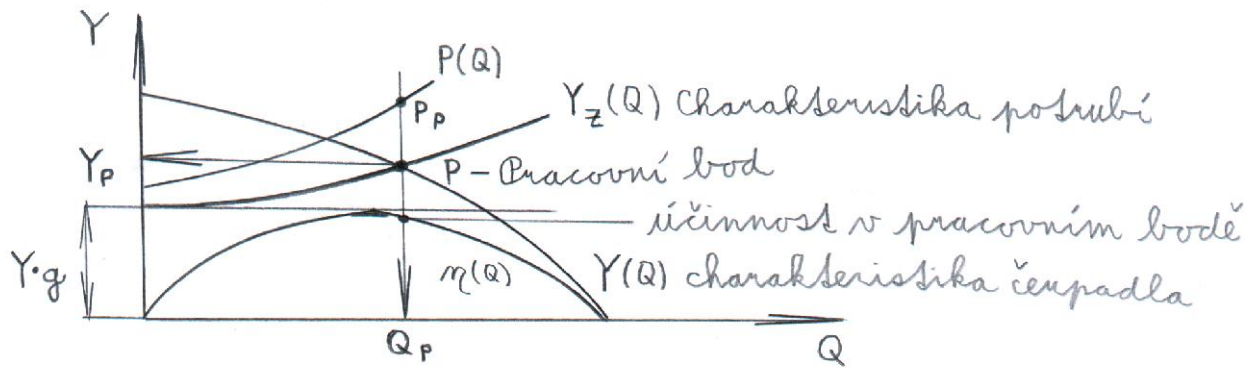 Y
P(Q)
P_P
Y_Z(Q) Charakteristika potrubí
Y_P
P - Pracovní bod
účinnost v pracovním bodě
Y·g
η(Q)
Y(Q) charakteristika čerpadla
Q_P
Q